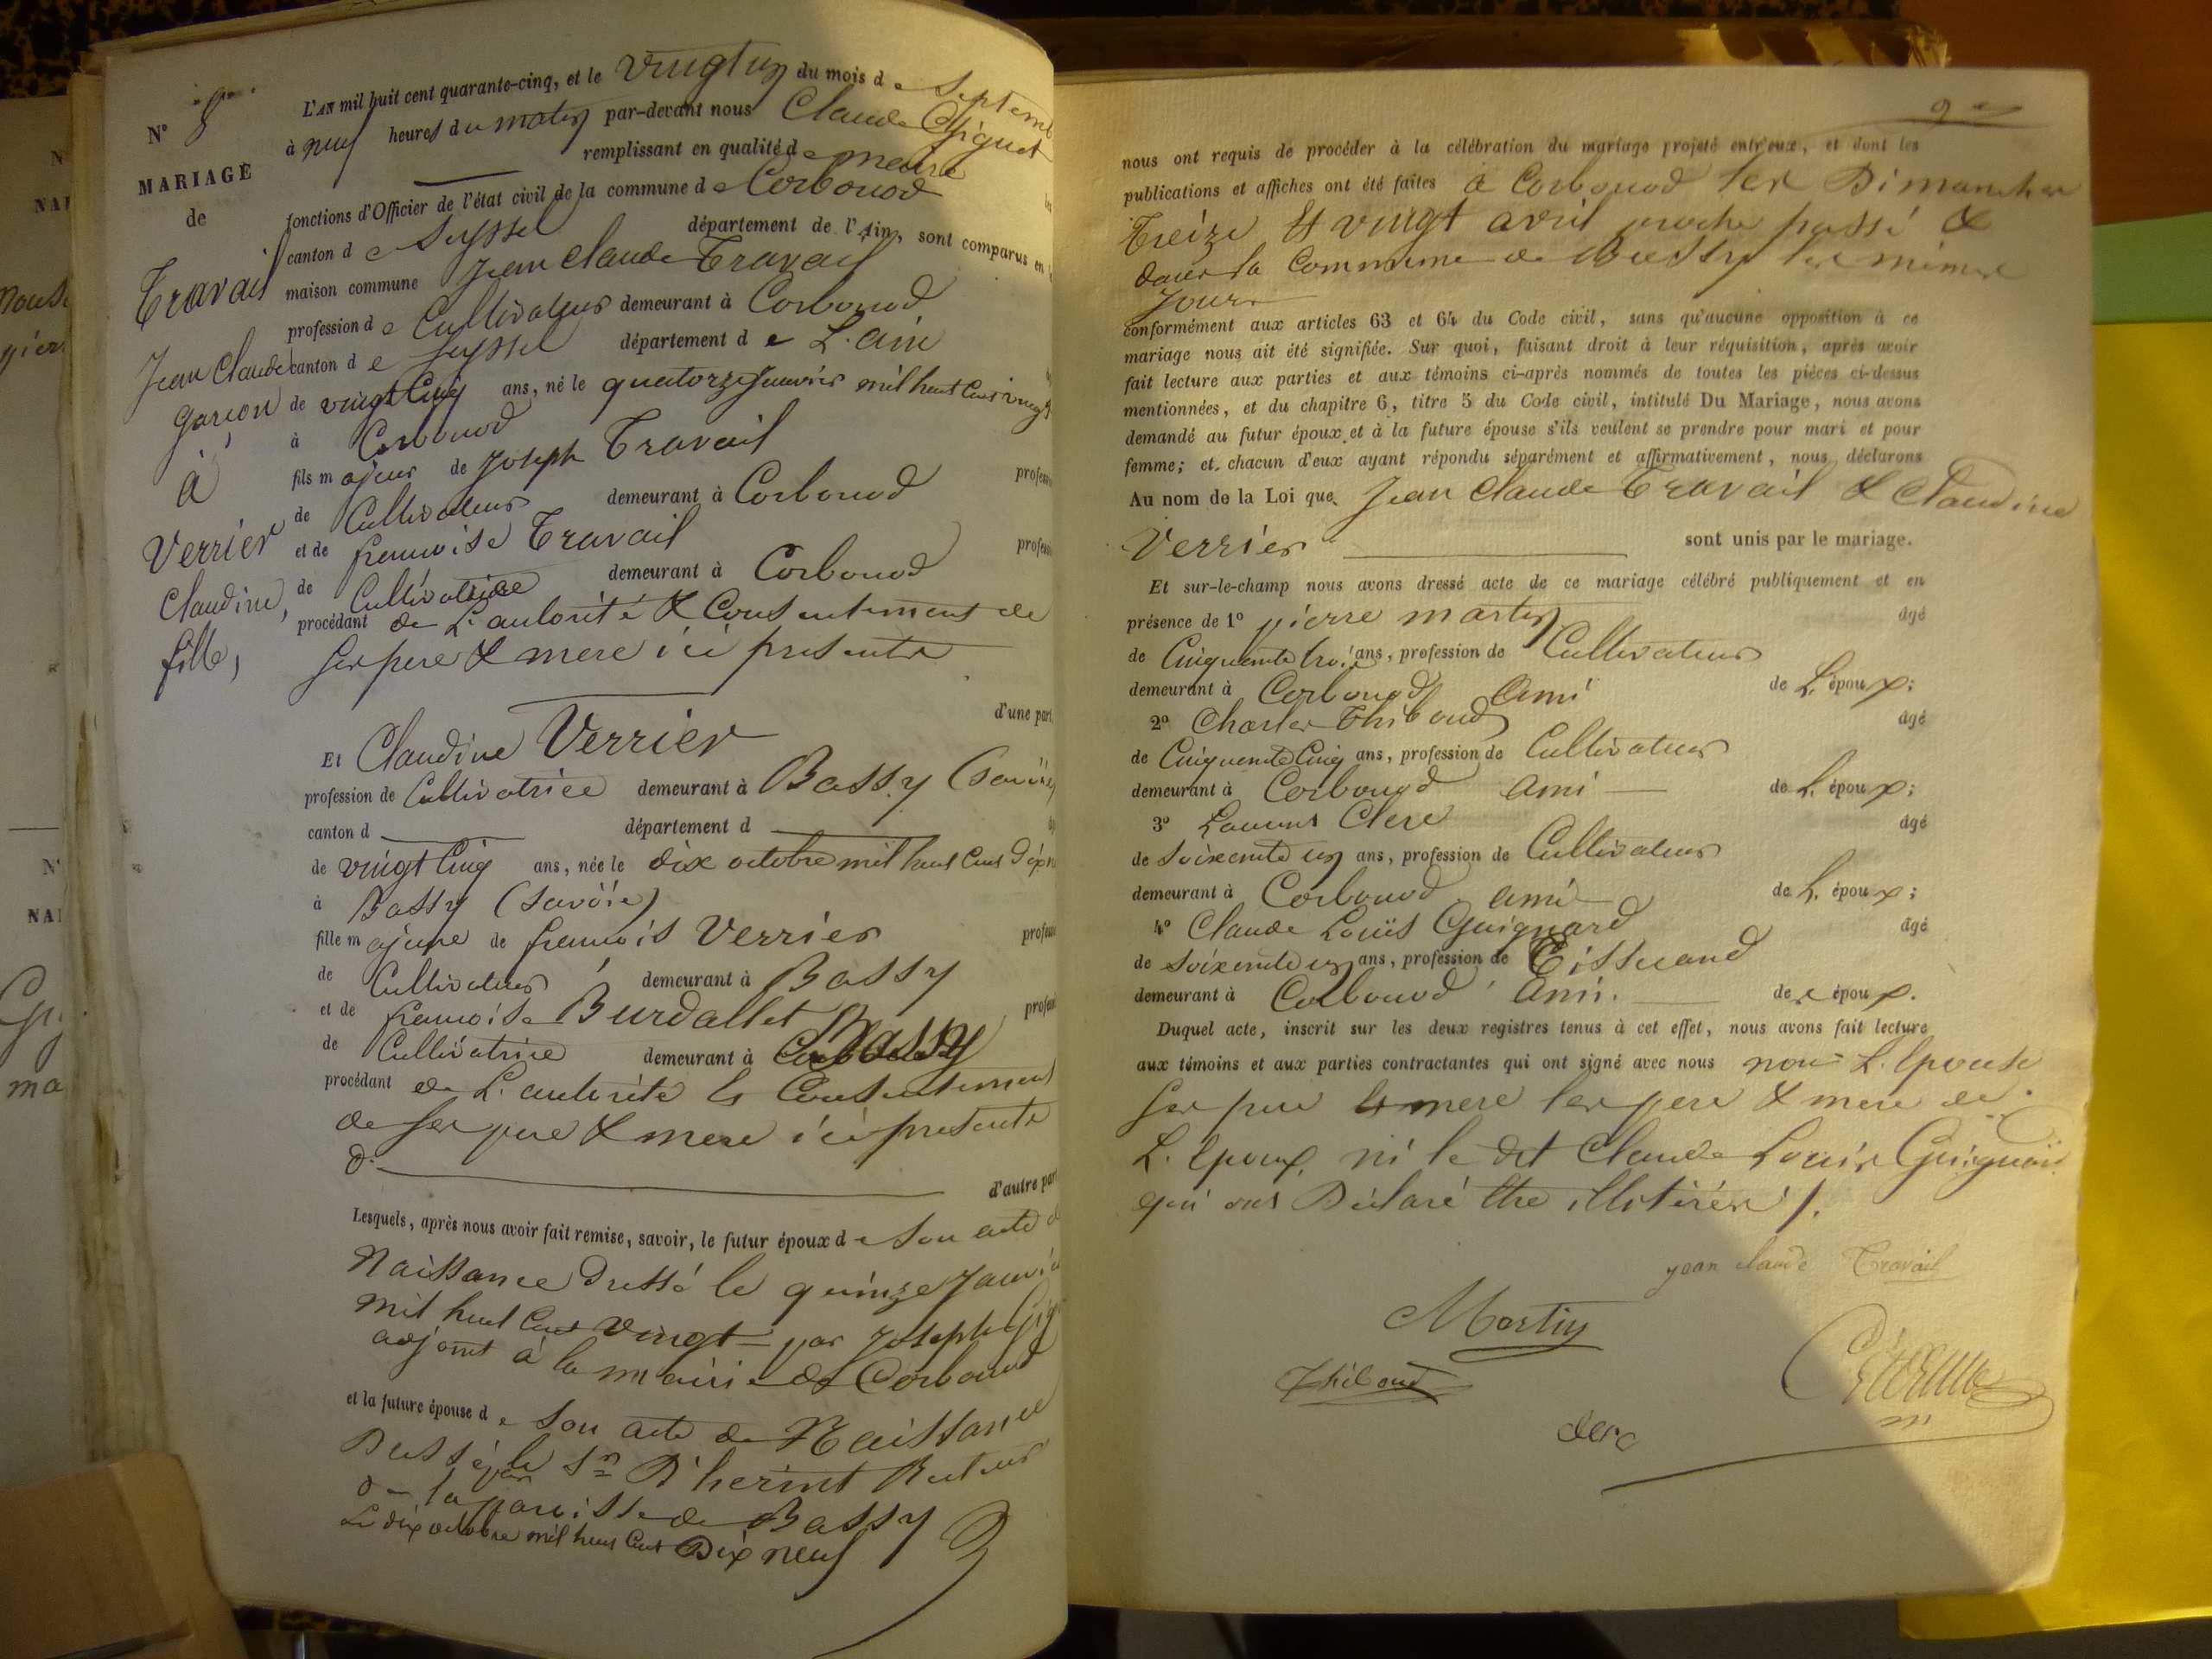 N° 8
MARIAGE
de
Travail
Jean Claude
garcon
à
Verrier
Claudine,
fille,
L'AN mil huit cent quarante-cinq, et le vingt un du mois de Septemb
à neuf heures du matin par-devant nous Claude
remplissant en qualité de maire
fonctions d'Officier de l'état civil de la commune de Corbonod
canton de Seyssel département de l'Ain, sont comparus en
maison commune Jean Claude Travail
profession de Cultivateur demeurant à Corbonod
canton de Seyssel département de L'ain
de vingt Cinq ans, né le quatorze Janvier mil huit Cent vingt
à Corbonod
fils majeur de Joseph Travail profess
de Cultivateur demeurant à Corbonod
et de francoise Travail profess
de Cultivatrice demeurant à Corbonod
procédant de L'autorité & Consentement de
ses pere & mere ici presents
d'une part.
Et Claudine Verrier
profession de Cultivatrice demeurant à Bassy (Savoie)
canton d département d
de vingt Cinq ans, née le dix octobre mil huit Cent dix n
à Bassy (Savoïe)
fille majeure de francois Verrier profess
de Cultivateur demeurant à Bassy
et de francoise Burdallet profess
de Cultivatrice demeurant à Bassy
procédant de L'autorité & Consentement
de ses pere & mere ici presents
d'autre part
Lesquels, après nous avoir fait remise, savoir, le futur époux de son acte d
Naissance dressé le quinze Janvie
mil huit Cent vingt par Joseph
adjoint à la mairie de Corbonod
et la future épouse de son acte de Naissance
Dressé par le Sr D'herint Recteur
de la paroisse de Bassy
Le dix octobre mil huit Cent Dix neuf
9
nous ont requis de procéder à la célébration du mariage projeté entr'eux, et dont les
publications et affiches ont été faites à Corbonod les Dimanches
Treize & vingt avril proche passé &
dans la Commune de Bassy les mêmes
Jours
conformément aux articles 63 et 64 du Code civil, sans qu'aucune opposition à ce
mariage nous ait été signifiée. Sur quoi, faisant droit à leur réquisition, après avoir
fait lecture aux parties et aux témoins ci-après nommés de toutes les pièces ci-dessus
mentionnées, et du chapitre 6, titre 5 du Code civil, intitulé Du Mariage, nous avons
demandé au futur époux et à la future épouse s'ils veulent se prendre pour mari et pour
femme; et, chacun d'eux ayant répondu séparément et affirmativement, nous déclarons
Au nom de la Loi que Jean Claude Travail & Claudine
Verrier sont unis par le mariage.
Et sur-le-champ nous avons dressé acte de ce mariage célébré publiquement et en
présence de 1° pierre martin âgé
de Cinquante trois ans, profession de Cultivateur
demeurant à Corbonod ami de L'époux;
2° Charles Thiboud âgé
de Cinquante Cinq ans, profession de Cultivateur
demeurant à Corbonod ami de L'époux;
3° Laurent Clerc âgé
de soixante un ans, profession de Cultivateur
demeurant à Corbonod ami de L'époux;
4° Claude Louïs Guignard âgé
de soixante un ans, profession de Tisserand
demeurant à Corbonod ami. de époux.
Duquel acte, inscrit sur les deux registres tenus à cet effet, nous avons fait lecture
aux témoins et aux parties contractantes qui ont signé avec nous non L'epouse
ses pere & mere les pere & mere de
L'epoux, ni le dit Claude Louis Guignard
qui ont Déclaré être illitérés /.
jean claude Travail
Martin
Thiboud
clerc